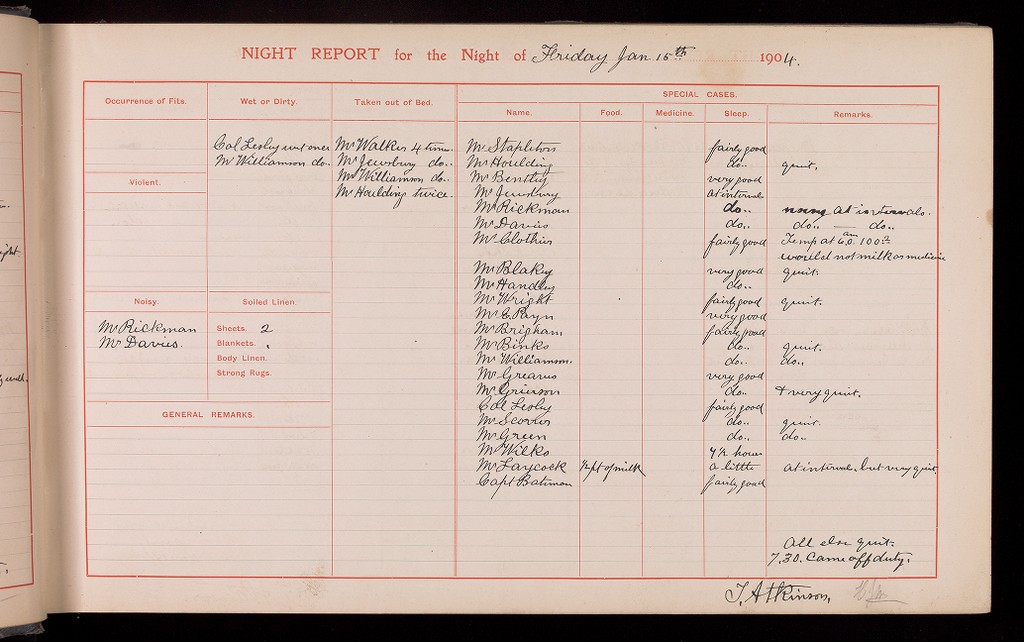 NIGHT REPORT for the Night of Friday Jan 15th 1904.
SPECIAL CASES.
Occurrence of Fits. Wet or Dirty. Taken out of Bed. Name. Food. Medicine. Sleep. Remarks.
Col Lesley wet once Mr Walker 4 times Mr Stapleton fairly good
Mr Williamson do.. Mr Jewsbury do.. Mr Houlding do.. quiet.
Violent. Mr Williamson do.. Mr Bentley very good
Mr Houlding twice. Mr Jewsbury at interval
Mr Rickman do.. noisy at intervals.
Mr Davies do.. do.. — do..
Mr Clothier fairly good Temp at 6.0. am 100.2
would not milk or medicine
Mr Blakey very good quiet.
Mr Handley do..
Noisy. Soiled Linen. Mr Wright fairly good quiet.
Mr C Payn very good
Mr Rickman Sheets. 2 Mr Brigham fairly good
Mr Davies. Blankets. Mr Binks do.. quiet.
Body Linen. Mr Williamson. do.. do..
Strong Rugs. Mr Greaves very good
Mr Grierson do.. & very quiet.
GENERAL REMARKS. Col Lesley fairly good
Mr Scorer do.. quiet.
Mr Green do.. do..
Mr Wilks 4½ hours
Mr Laycock ½ pt of milk a little at interval, but very quiet
Capt Bateman fairly good
All else quiet.
7.30. Came off duty.
J. Atkinson.